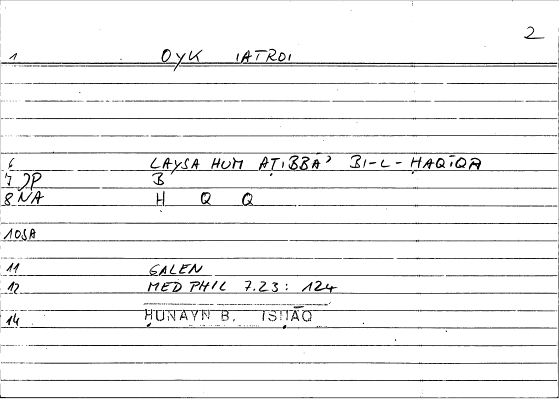 2
1 OYK IATROI
6 LAYSA HUM AṬIBBĀʾ BI-L-ḤAQĪQA
7 JP B
8 NA H Q Q
10 SA
11 GALEN
12 MED PHIL 7.23: 124
14 ḤUNAYN B. ISḤĀQ